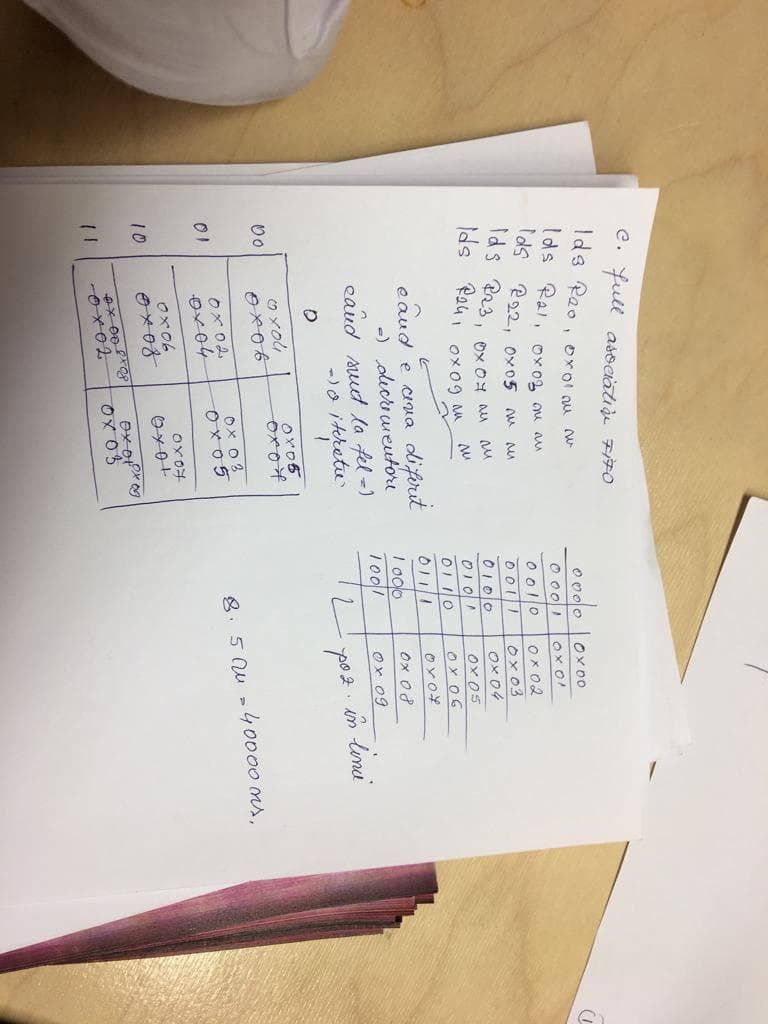 c. full asociativ FIFO
lds R20, 0x01 m m
lds R21, 0x03 m m
lds R22, 0x05 m m
lds R23, 0x07 m m
lds R24, 0x09 m m
când e ceva diferit
=) decrementare
când sunt la fel =)
=) o iterație
0000 0x00
0001 0x01
0010 0x02
0011 0x03
0100 0x04
0101 0x05
0110 0x06
0111 0x07
1000 0x08
1001 0x09
poz. în linie
8. 5 m = 40000 ns.
0 1
00 0x04 0x05
0x06 0x07
01 0x02 0x03
0x04 0x05
10 0x06 0x07
0x08 0x01
11 0x00 0x08 0x01 0x09
0x02 0x03